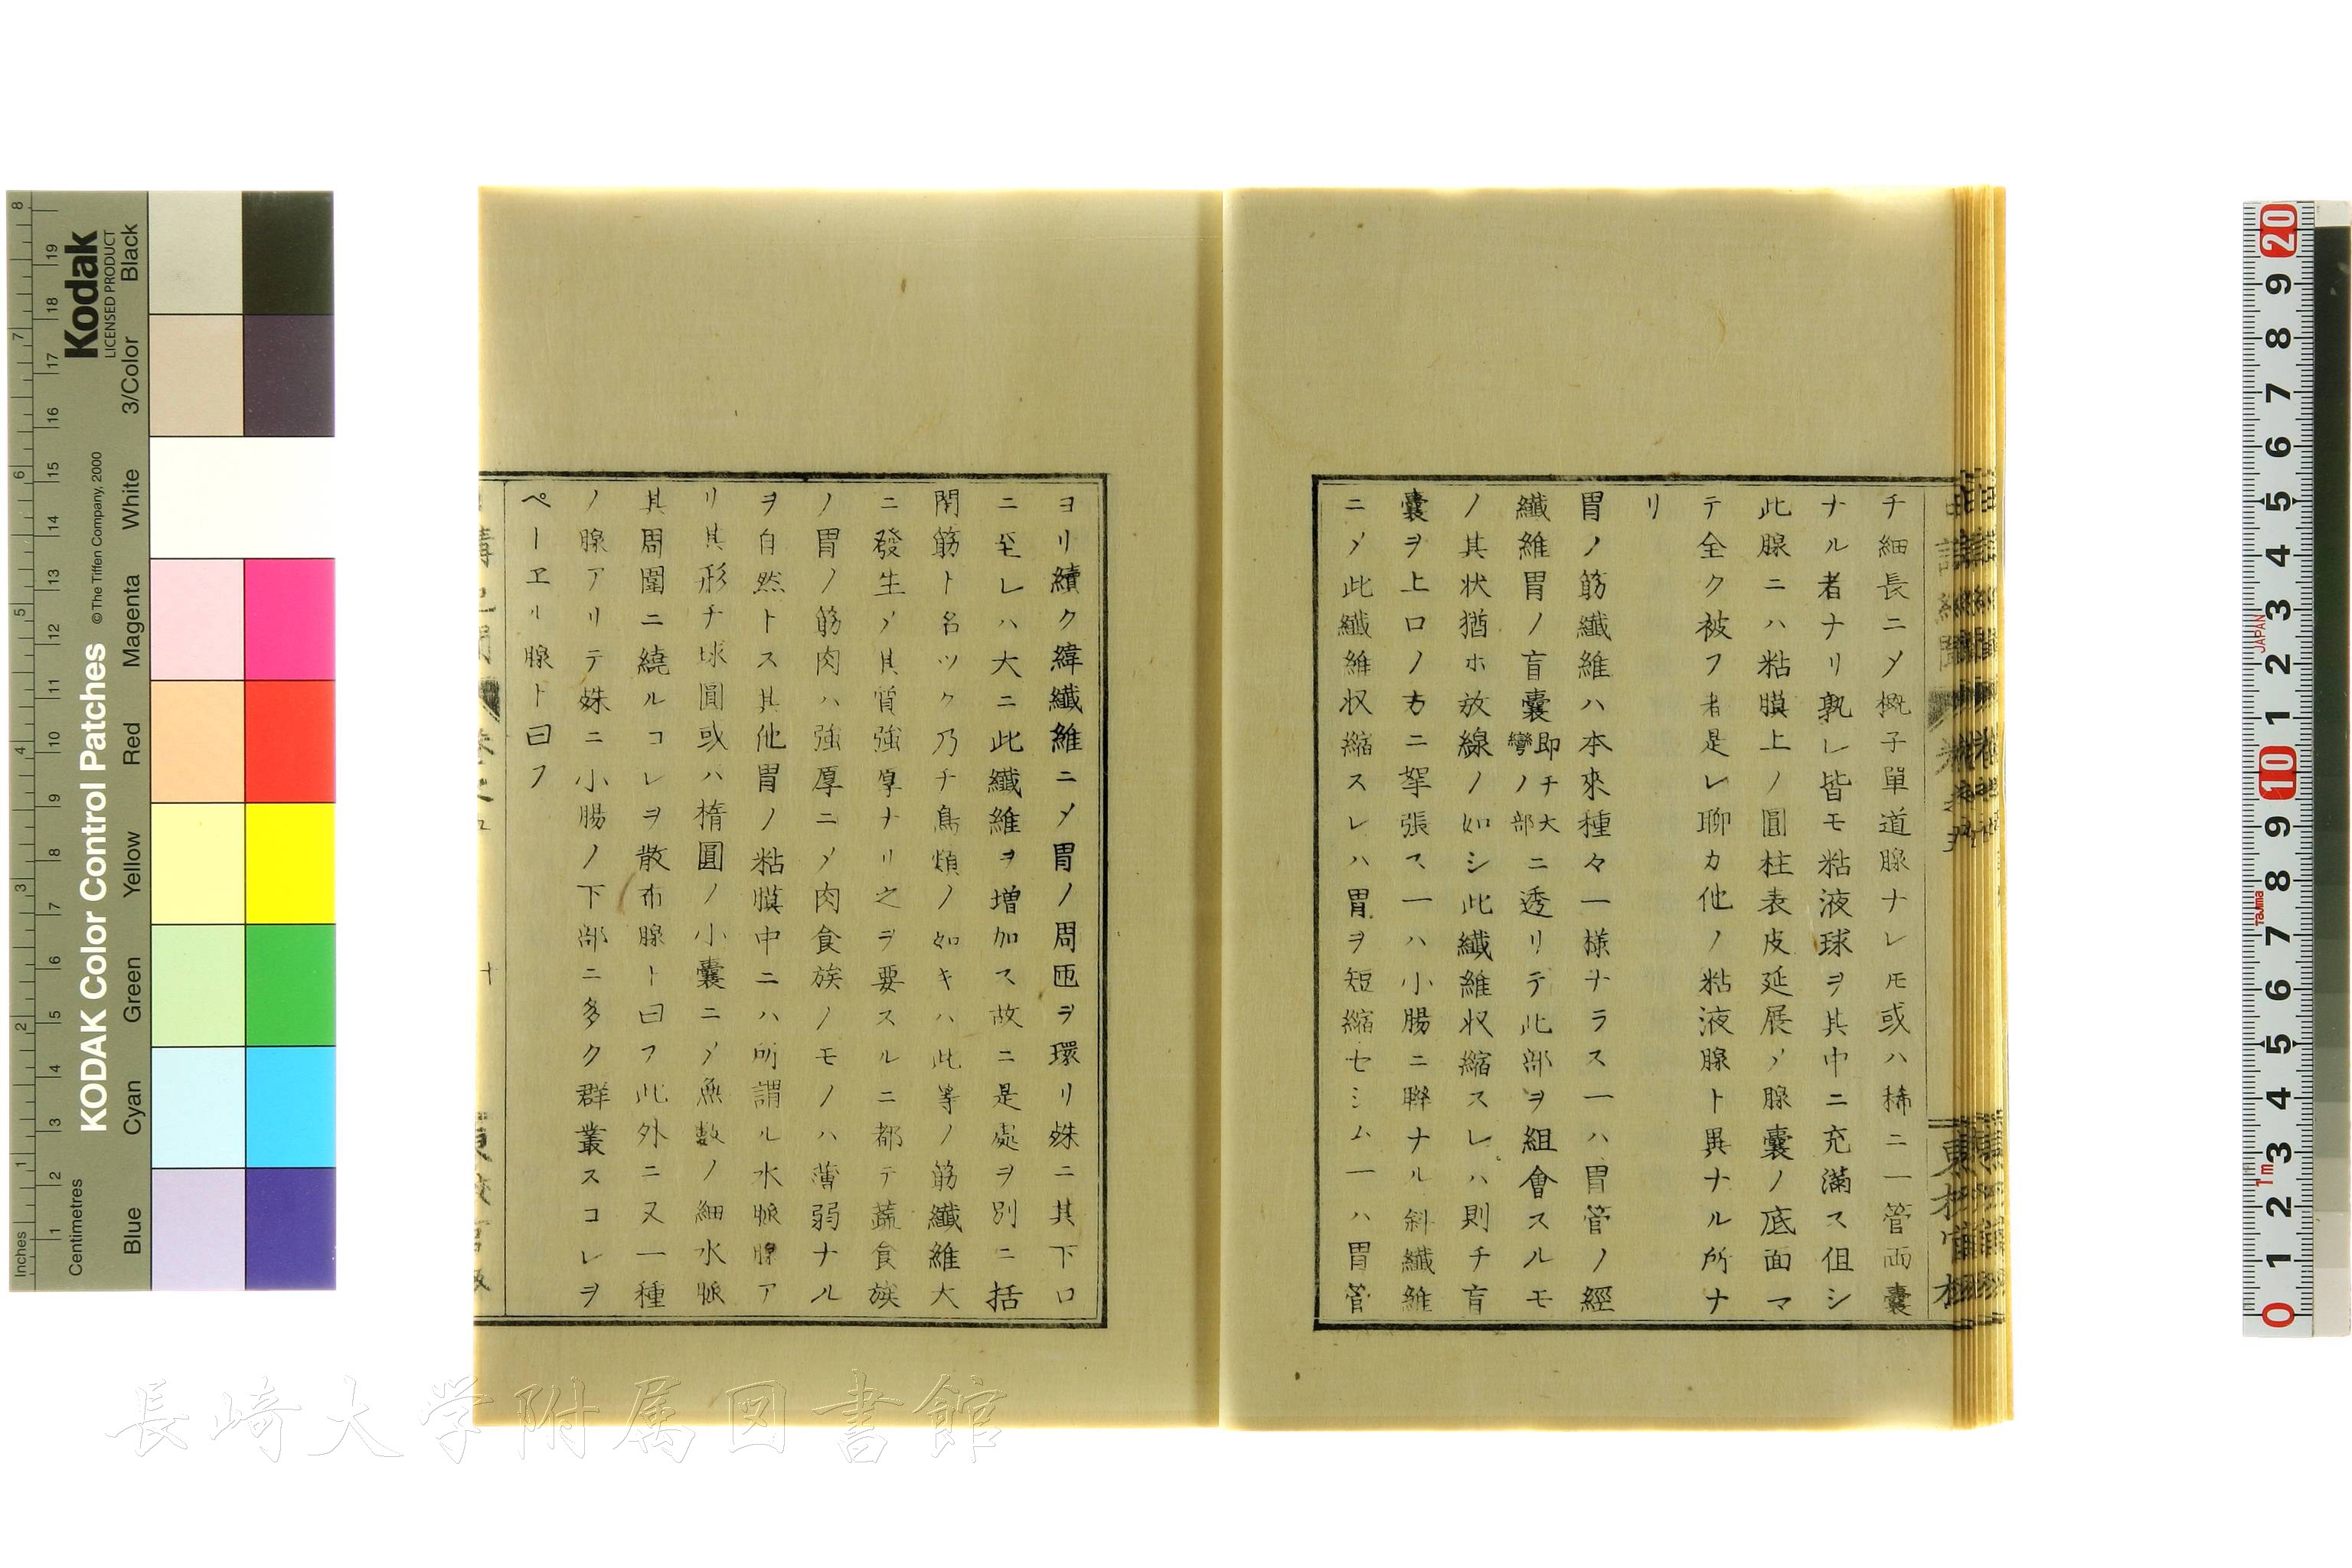 チ細長ニメ概子單道腺ナレ𪜈或ハ稀ニ一管両囊
ナル者ナリ孰レ皆モ粘液球ヲ其中ニ充滿ス但シ
此腺ニハ粘膜上ノ圓柱表皮延展メ腺囊ノ底面マ
テ全ク被フ者是レ聊カ他ノ粘液腺ト異ナル所ナ
リ
胃ノ筋纖維ハ本來種々一様ナラス一ハ胃管ノ經
纖維胃ノ盲囊即チ大彎ノ部ニ透リテ此部ヲ組會スルモ
ノ其状猶ホ放線ノ如シ此纖維収縮スレハ則チ盲
囊ヲ上口ノ方ニ挐張ス一ハ小腸ニ聨ナル斜纖維
ニメ此纖維収縮スレハ胃ヲ短縮セシム一ハ胃管
ヨリ續ク緯纖維ニメ胃ノ周匝ヲ環リ殊ニ其下口
ニ至レハ大ニ此纖維ヲ増加ス故ニ是處ヲ別ニ括
閉筋ト名ツク乃チ鳥類ノ如キハ此等ノ筋纖維大
ニ發生メ其質強厚ナリ之ヲ要スルニ都テ蔬食族
ノ胃ノ筋肉ハ強厚ニメ肉食族ノモノハ薄弱ナル
ヲ自然トス其他胃ノ粘膜中ニハ所謂ル水脈腺ア
リ其形チ球圓或ハ楕圓ノ小囊ニメ無數ノ細水脈
其周圍ニ繞ルコレヲ散布腺ト曰フ此外ニ又一種
ノ腺アリテ殊ニ小腸ノ下部ニ多ク群叢スコレヲ
ペーエル腺ト曰フ
十
Kodak
LICENSED PRODUCT
KODAK Color Control Patches
© The Tiffen Company, 2000
Inches
Centimetres
Blue
Cyan
Green
Yellow
Red
Magenta
White
3/Color
Black
JAPAN
Tajima
1m
長崎大学附属図書館